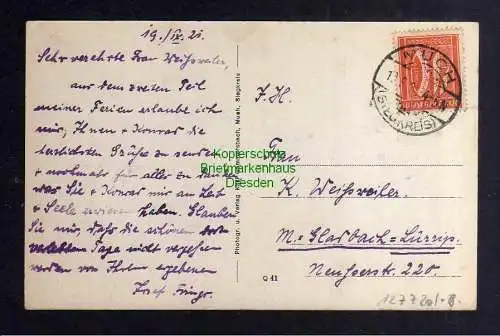 19./IX. 21.
Sehr verehrte Frau Weißweiler,
aus dem zweiten Teil
meiner Ferien erlaube ich
mir, Ihnen + Konrad die
herzlichsten Grüße zu senden
+ nochmals für alles zu danken
was Sie + Konrad mir an Leib
+ Seele erwiesen haben. Glauben
Sie mir, daß die schönen dort
verlebten Tage nicht vergessen
werden von Ihrem ergebenen
Josef
Photogr. u. Verlag
MUCH
(SIEGKREIS)
F. H.
Frau
K. Weißweiler.
M.-Gladbach-Lürrip.
Neußerstr. 220.
Q 41
Kopierschutz
Briefmarkenhaus
Dresden